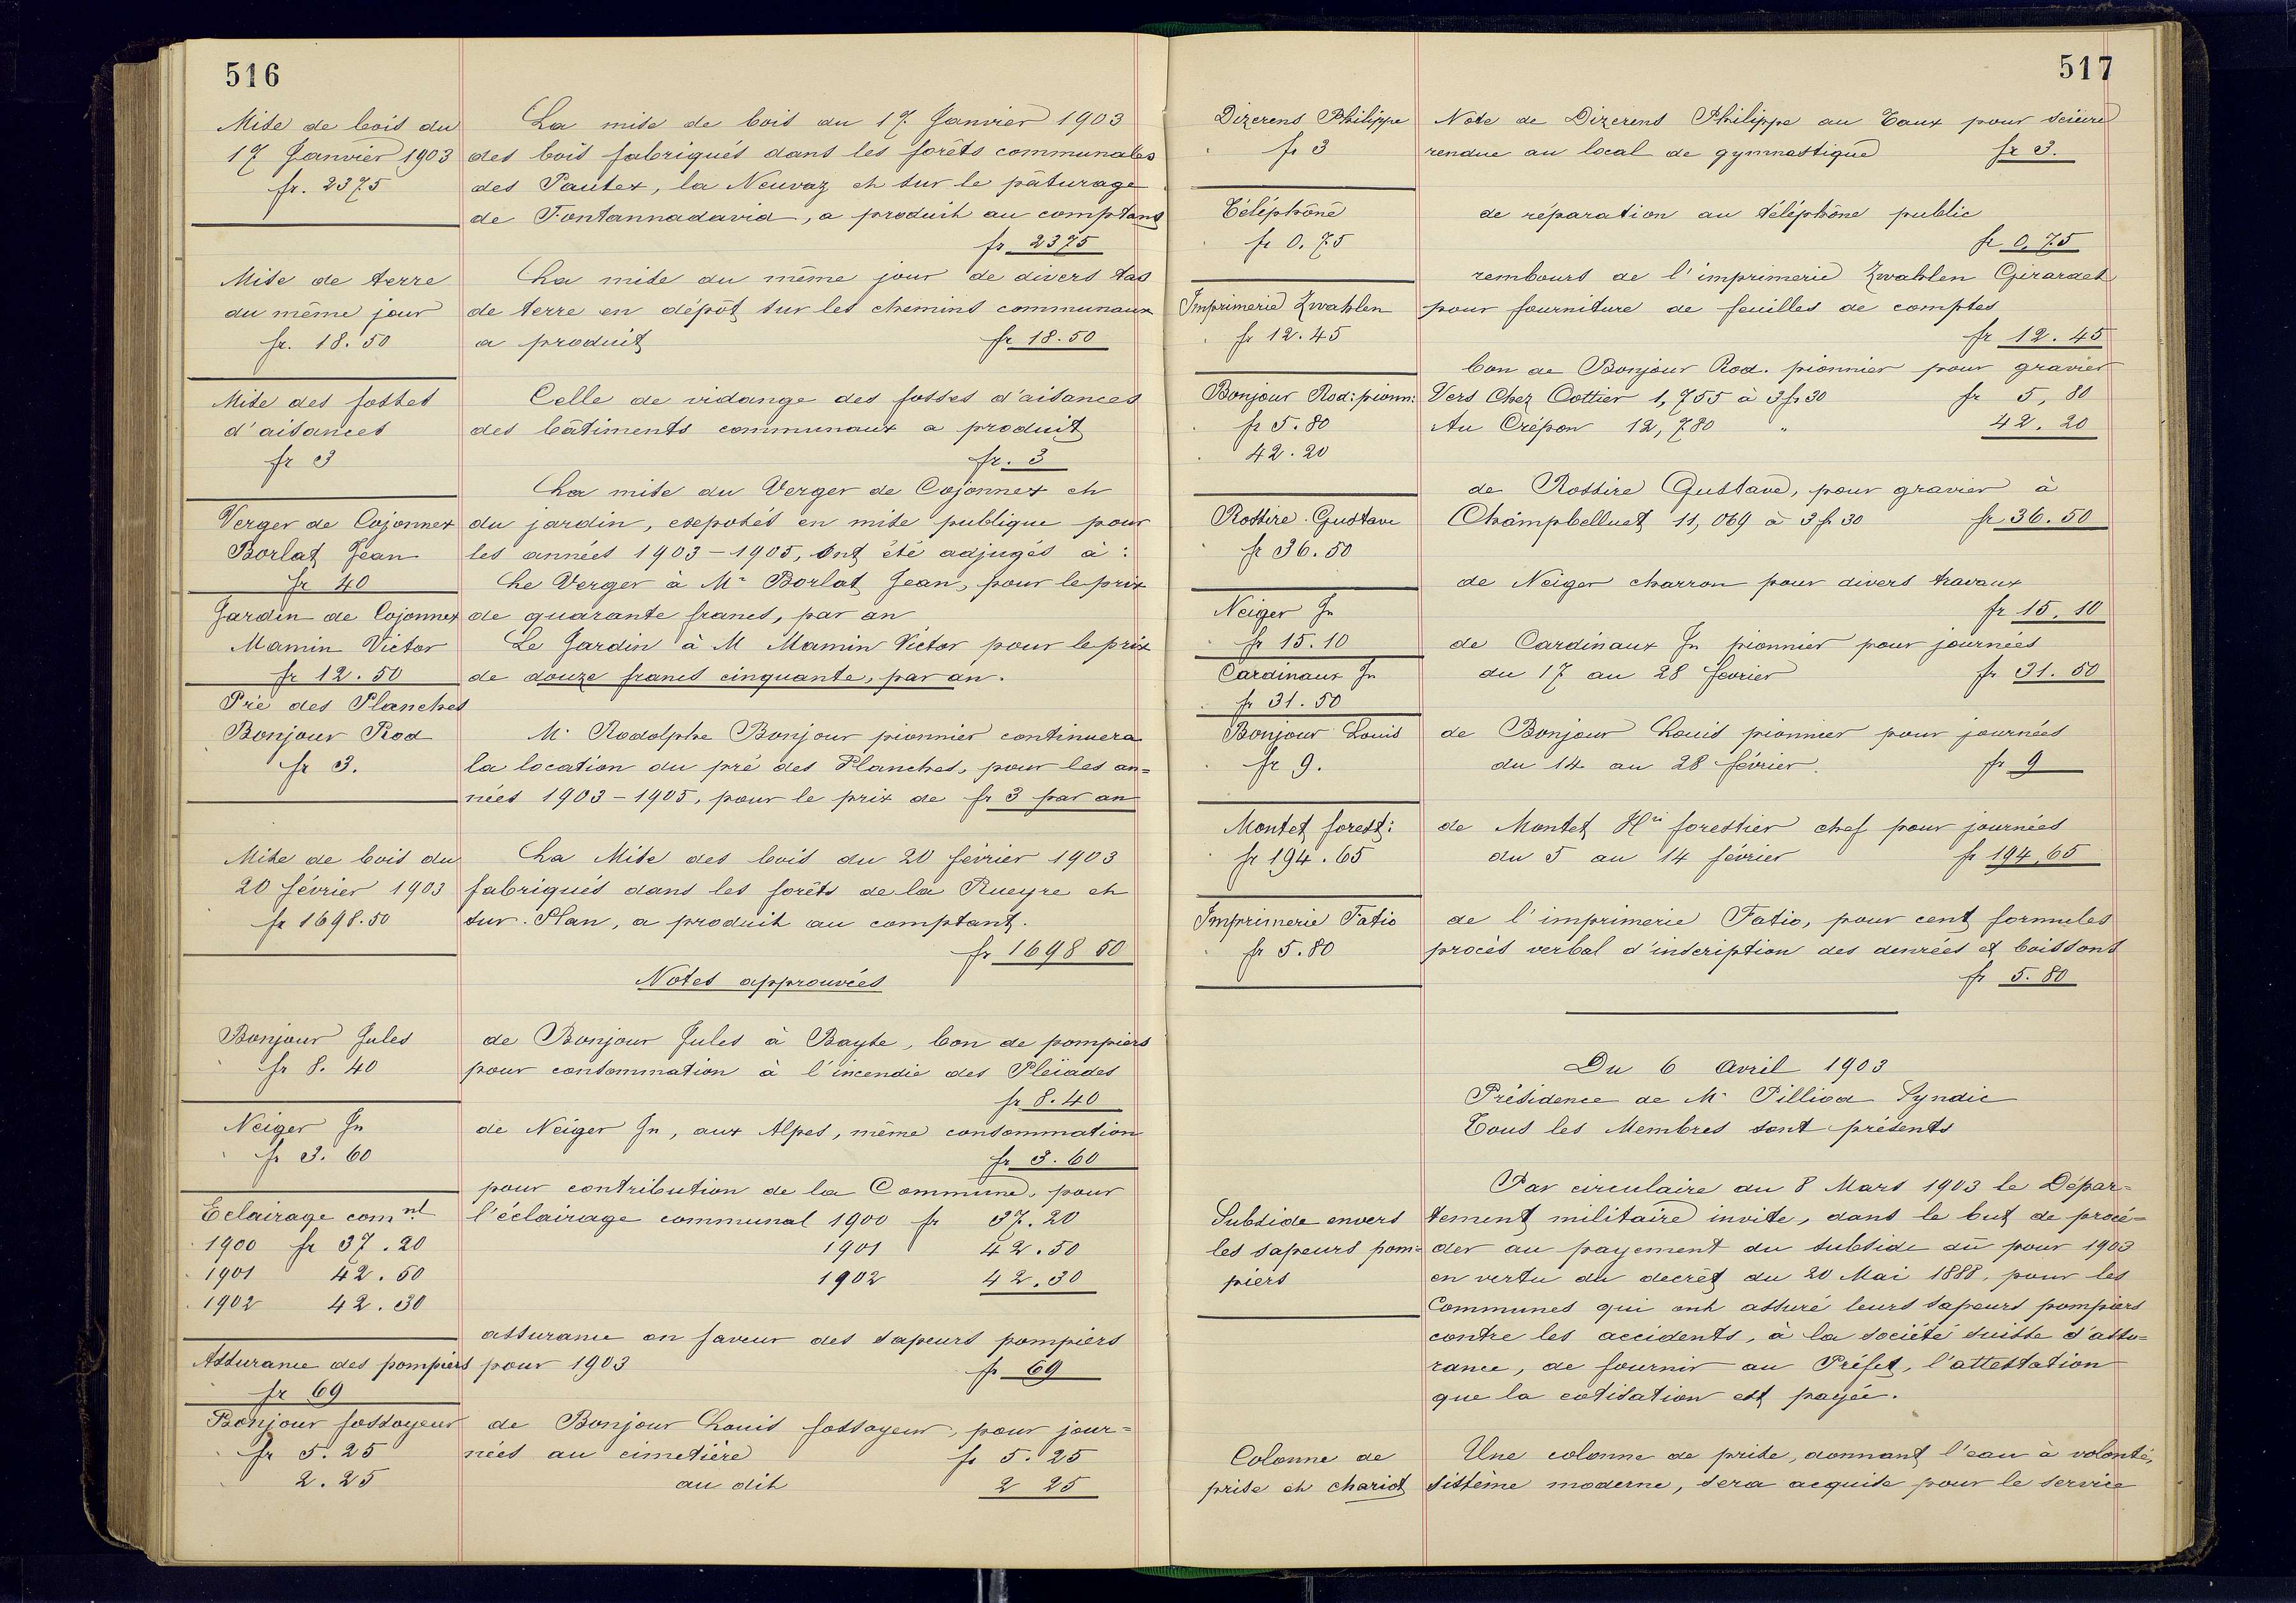 516
Mise de bois du
17 Janvier 1903
fr. 2375
La mise de bois du 17 Janvier 1903
des bois fabriqués dans les forêts communales
des Pautex, la Neuvaz et sur le pâturage
de Fontannadavid, a produit au comptant
fr 2375
Mise de terre
du même jour
fr. 18.50
La mise du même jour de divers tas
de terre en dépôt sur les chemins communaux
a produit fr 18.50
Mise des fosses
d'aisances
fr 3
Celle de vidange des fosses d'aisances
des bâtiments communaux a produit
fr. 3
Verger de Cojonnex
Borlat Jean
fr 40
Jardin de Cojonnex
Mamin Victor
fr 12.50
La mise du Verger de Cojonnex et
du jardin, exposés en mise publique pour
les années 1903-1905, ont été adjugés à :
Le Verger à Mr Borlat Jean, pour le prix
de quarante francs, par an
Le Jardin à M Mamin Victor pour le prix
de douze francs cinquante, par an.
Pré des Planches
Bonjour Rod
fr 3.
Mr Rodolphe Bonjour pionnier continuera
la location du pré des Planches, pour les an=
nées 1903-1905, pour le prix de fr 3 par an
Mise de bois du
20 février 1903
fr 1698.50
La Mise des bois du 20 février 1903
fabriqués dans les forêts de la Rueyre et
sur Plan, a produit au comptant.
fr 1698 50
Notes approuvées
Bonjour Jules
fr 8.40
de Bonjour Jules à Bayse, bon de pompiers
pour consommation à l'incendie des Pléïades
fr 8.40
Neiger Jn
fr 3.60
de Neiger Jn, aux Alpes, même consommation
fr 3.60
Eclairage comnl
1900 fr 37.20
1901 42.50
1902 42.30
pour contribution de la Commune, pour
l'éclairage communal 1900 fr 37.20
1901 42.50
1902 42.30
Assurance des pompiers
fr 69
assurance en faveur des sapeurs pompiers
pour 1903 fr 69
Bonjour fossoyeur
fr 5.25
2.25
de Bonjour Louis fossoyeur, pour jour=
nées au cimetière fr 5.25
au dit 2 25
517
Dizerens Philippe
fr 3
Note de Dizerens Philippe au Taux pour sciure
rendue au local de gymnastique fr 3.
Téléphone
fr 0.75
de réparation au téléphone public
fr 0,75
Imprimerie Zwahlen
fr 12.45
rembours de l'imprimerie Zwahlen Girardet
pour fourniture de feuilles de comptes
fr 12.45
Bonjour Rod: pionn:
fr 5.80
42.20
bon de Bonjour Rod. pionnier pour gravier
Vers Chez Cottier 1,755 à 3 fr 30 fr 5,80
Au Crépon 12,780 " 42.20
Rossire Gustave
fr 36.50
de Rossire Gustave, pour gravier à
Champbelluet 11,069 à 3 fr 30 fr 36.50
Neiger Jn
fr 15.10
de Neiger charron pour divers travaux
fr 15.10
Cardinaux Jn
fr 31.50
de Cardinaux Jn pionnier pour journées
du 17 au 28 fevrier fr 31.50
Bonjour Louis
fr 9.
de Bonjour Louis pionnier pour journées
du 14 au 28 février. fr 9
Montet forest:
fr 194.65
de Montet Hri forestier chef pour journées
du 5 au 14 février fr 194,65
Imprimerie Fatio
fr 5.80
de l'imprimerie Fatio, pour cent formules
procès verbal d'inscription des denrées et boissons
fr 5.80
Du 6 Avril 1903
Présidence de Mr Pilliod Syndic
Tous les Membres sont présents
Subside envers
les sapeurs pom=
piers
Par circulaire du 8 Mars 1903 le Dépar=
tement militaire invite, dans le but de procé=
der au payement du subside dû pour 1903
en vertu du decrêt du 20 Mai 1888, pour les
Communes qui ont assuré leurs sapeurs pompiers
contre les accidents, à la société suisse d'assu=
rance, de fournir au Préfet, l'attestation
que la cotisation est payée.
Colonne de
prise et chariot
Une colonne de prise, donnant l'eau à volonté,
sistème moderne, sera acquise pour le service